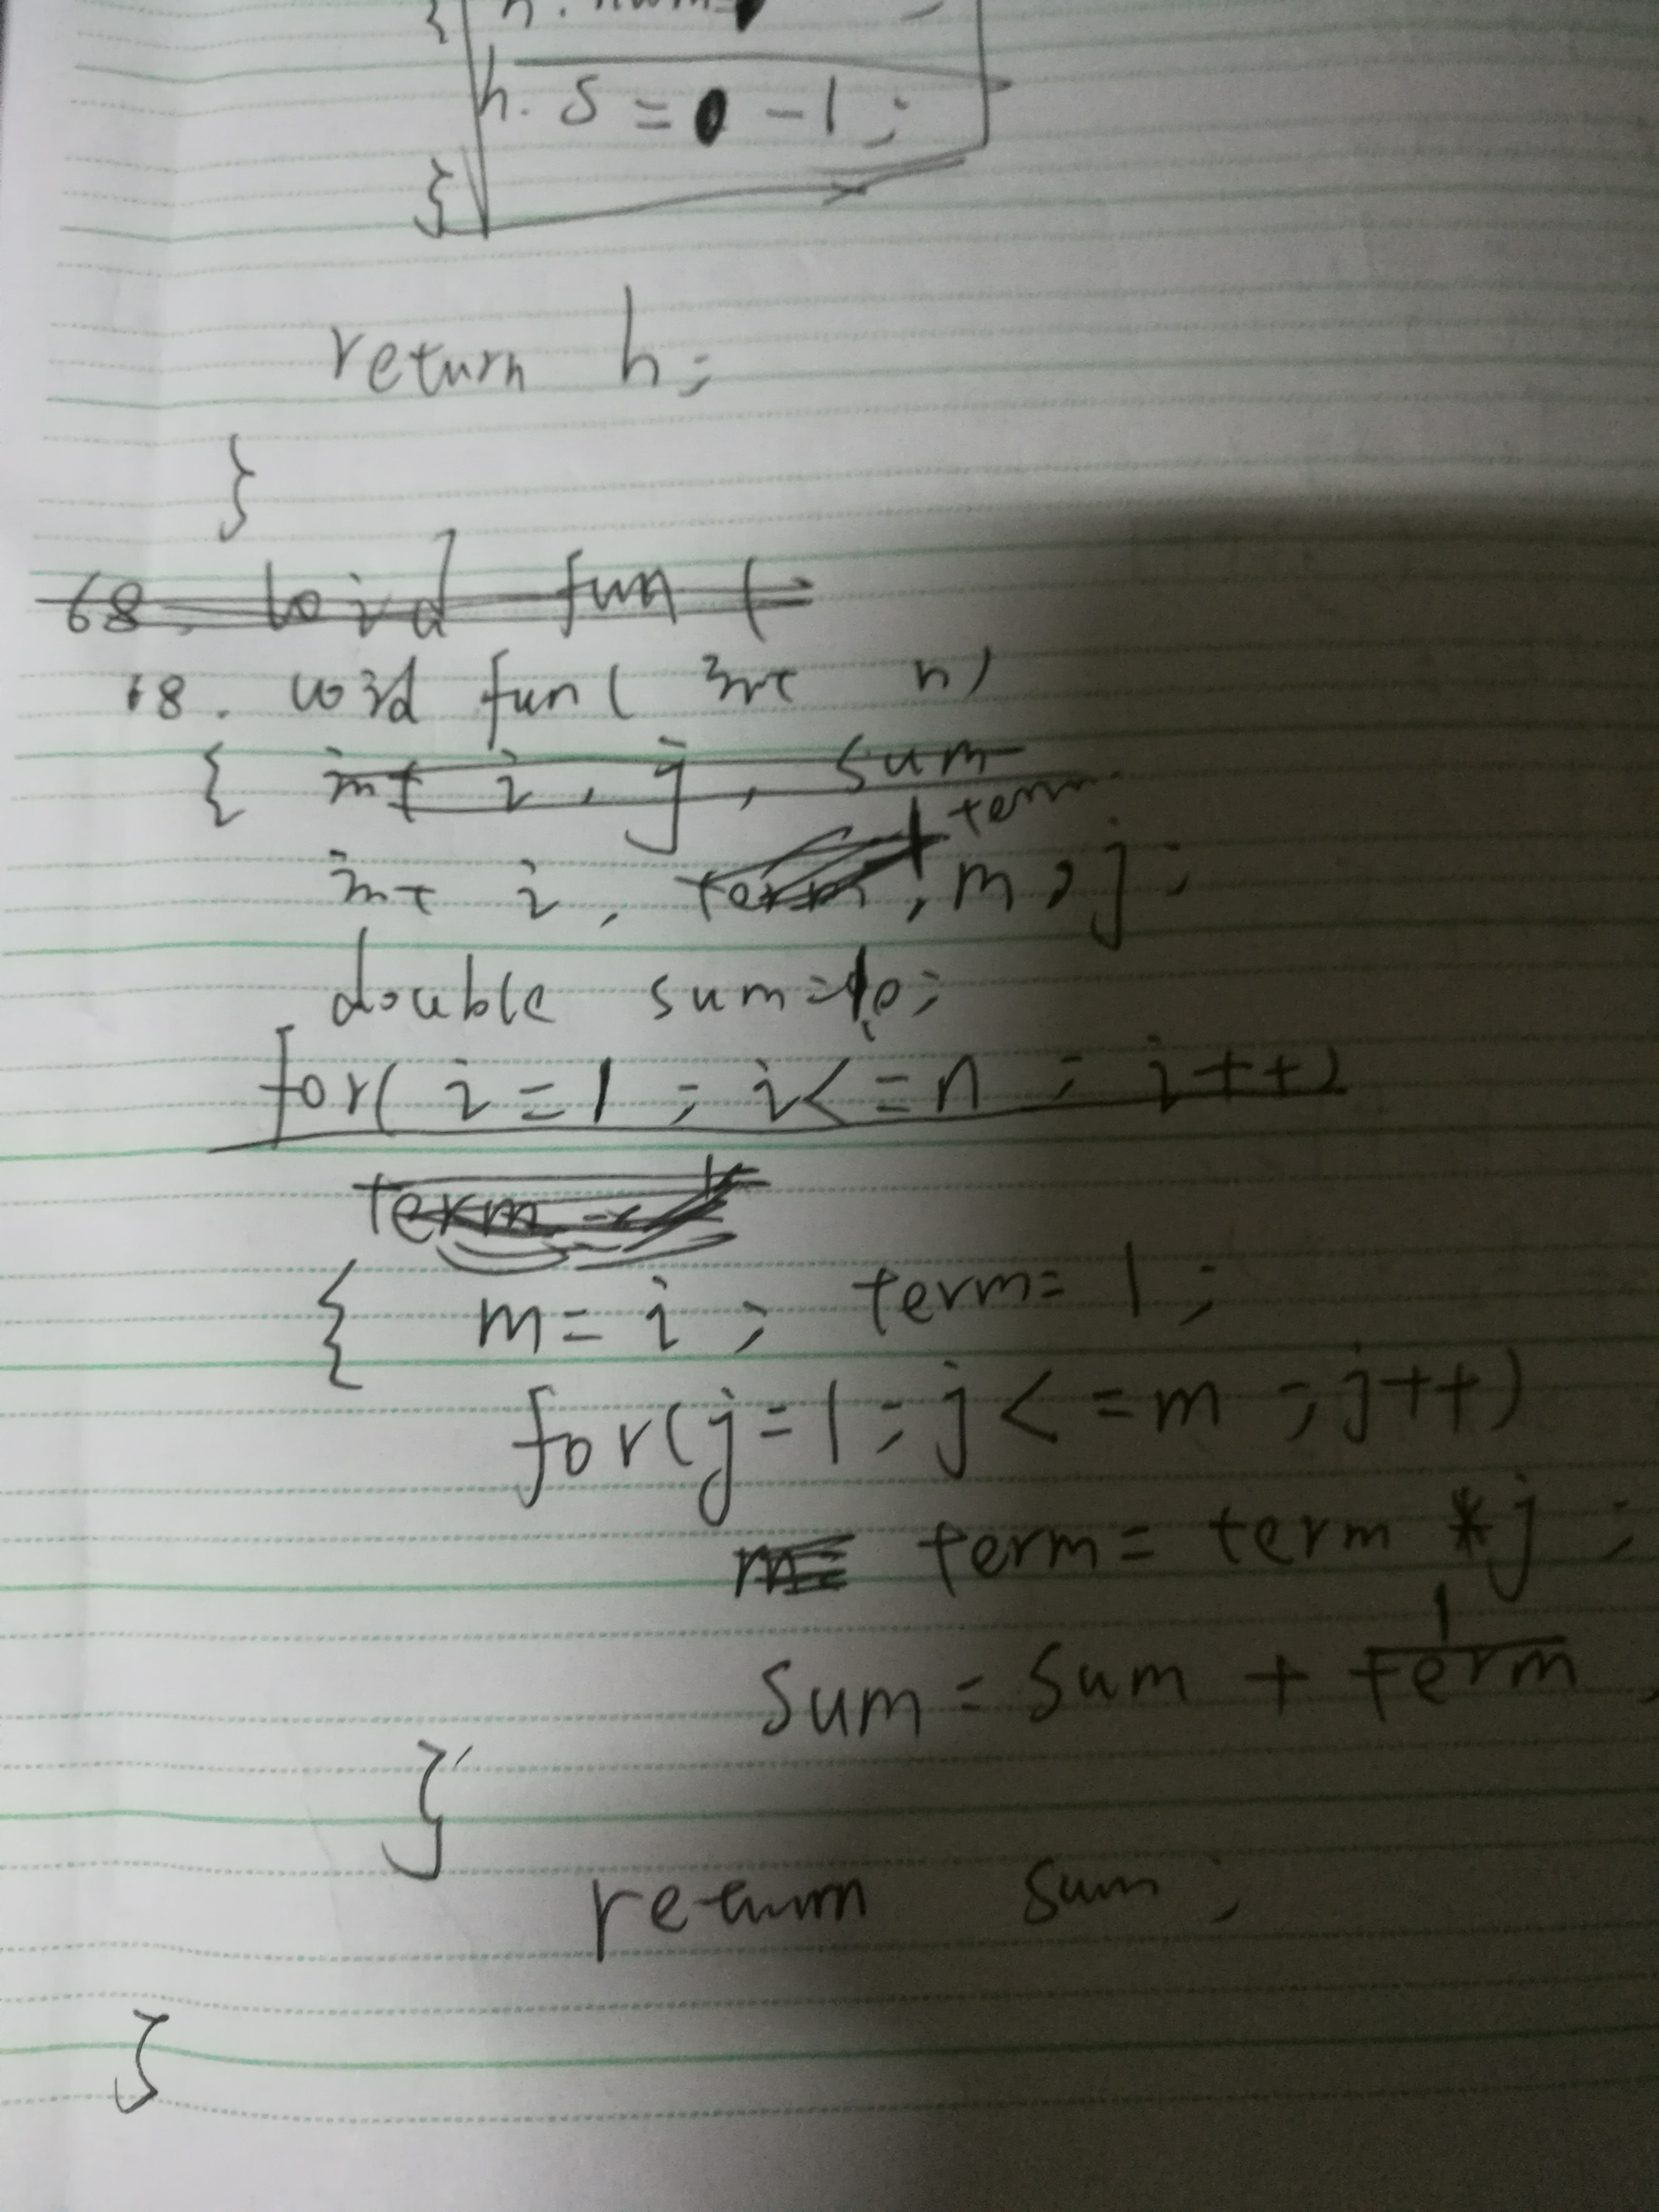 { h. num
h. s = -1;
}
return h;
}
68. void fun (
68. void fun( int n)
{ int i, j, sum
term
int i, term, m, j;
double sum=1.0;
for( i=1 ; i<=n ; i++)
term =
{ m= i ; term= 1 ;
for(j=1 ; j<=m ; j++)
m= term= term *j ;
1
sum= sum + term
}
return sum ;
}